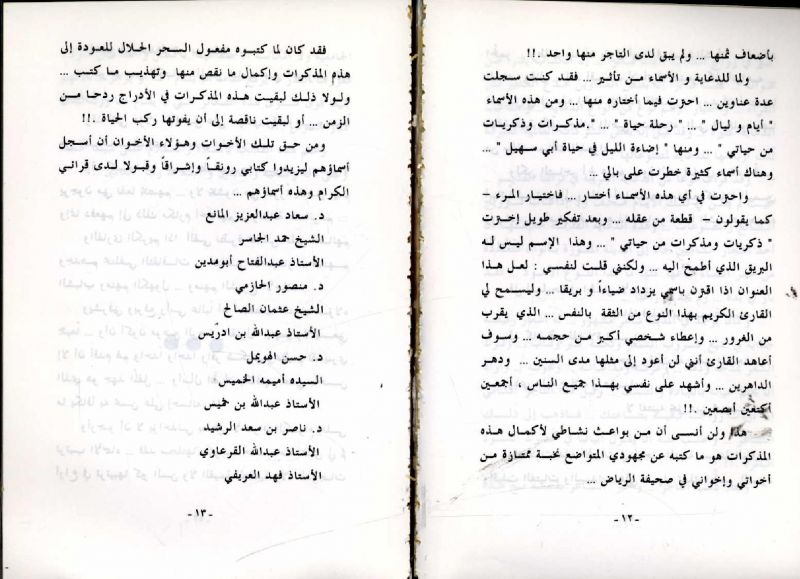 بأضعاف ثمنها ... ولم يبق لدى التاجر منها واحد .!!
ولما للدعاية و الأسماء من تأثير ... فقد كنت سجلت
عدة عناوين ... احترت فيما أختاره منها ... ومن هذه الأسماء
" أيام و ليال " ... " رحلة حياة " ... ".مذكرات وذكريات
من حياتي " ... ومنها " إضاءة الليل في حياة أبي سهيل " ...
وهناك أسماء كثيرة خطرت على بالي ...
واحترت في أي هذه الأسماء أختار ... فاختيار المرء –
كما يقولون – قطعة من عقله .. وبعد تفكير طويل إخترت
" ذكريات ومذكرات من حياتي " ... وهذا الإسم ليس له
البريق الذي أطمح اليه ... ولكنني قلت لنفسي : لعل هذا
العنوان اذا اقترن باسمي يزداد ضياءاً و بريقا ... وليسمح لي
القارئ الكريم بهذا النوع من الثقة بالنفس ... الذي يقرب
من الغرور ... وإعطاء شخصي أكبر من حجمه .. وسوف
أعاهد القارئ أنني لن أعود إلى مثلها مدى السنين ... ودهر
الداهرين ... وأشهد على نفسي بهذا جميع الناس ، أجمعين
أكتعين أبصعين .!!
هذا ولن أنسى أن من بواعث نشاطي لأكمال هذه
المذكرات هو ما كتبه عن مجهودي المتواضع نخبة ممتازة من
أخواتي وإخواني في صحيفة الرياض ...
-١٢-
فقد كان لما كتبوه مفعول السحر الحلال للعودة إلى
هذه المذكرات وإكمال ما نقص منها وتهذيب ما كتب ...
ولولا ذلك لبقيت هذه المذكرات في الأدراج ردحا من
الزمن ... أو لبقيت ناقصة إلى أن يفوتها ركب الحياة .!!
ومن حق تلك الأخوات وهؤلاء الأخوان أن أسجل
أسماؤهم ليزيدوا كتابي رونقاً وإشراقاً وقبولا لدى قرائي
الكرام وهذه أسماؤهم ...
د. سعاد عبدالعزيز المانع
الشيخ حمد الجاسر
الأستاذ عبدالفتاح أبومدين
د. منصور الحازمي
الشيخ عثمان الصالح
الأستاذ عبدالله بن ادرّيس
د. حسن الهويمل
السيده أميمه الخميس
الأستاذ عبدالله بن خميس
د. ناصر بن سعد الرشيد
الأستاذ عبدالله القرعاوي
الأستاذ فهد العريفي
-١٣-